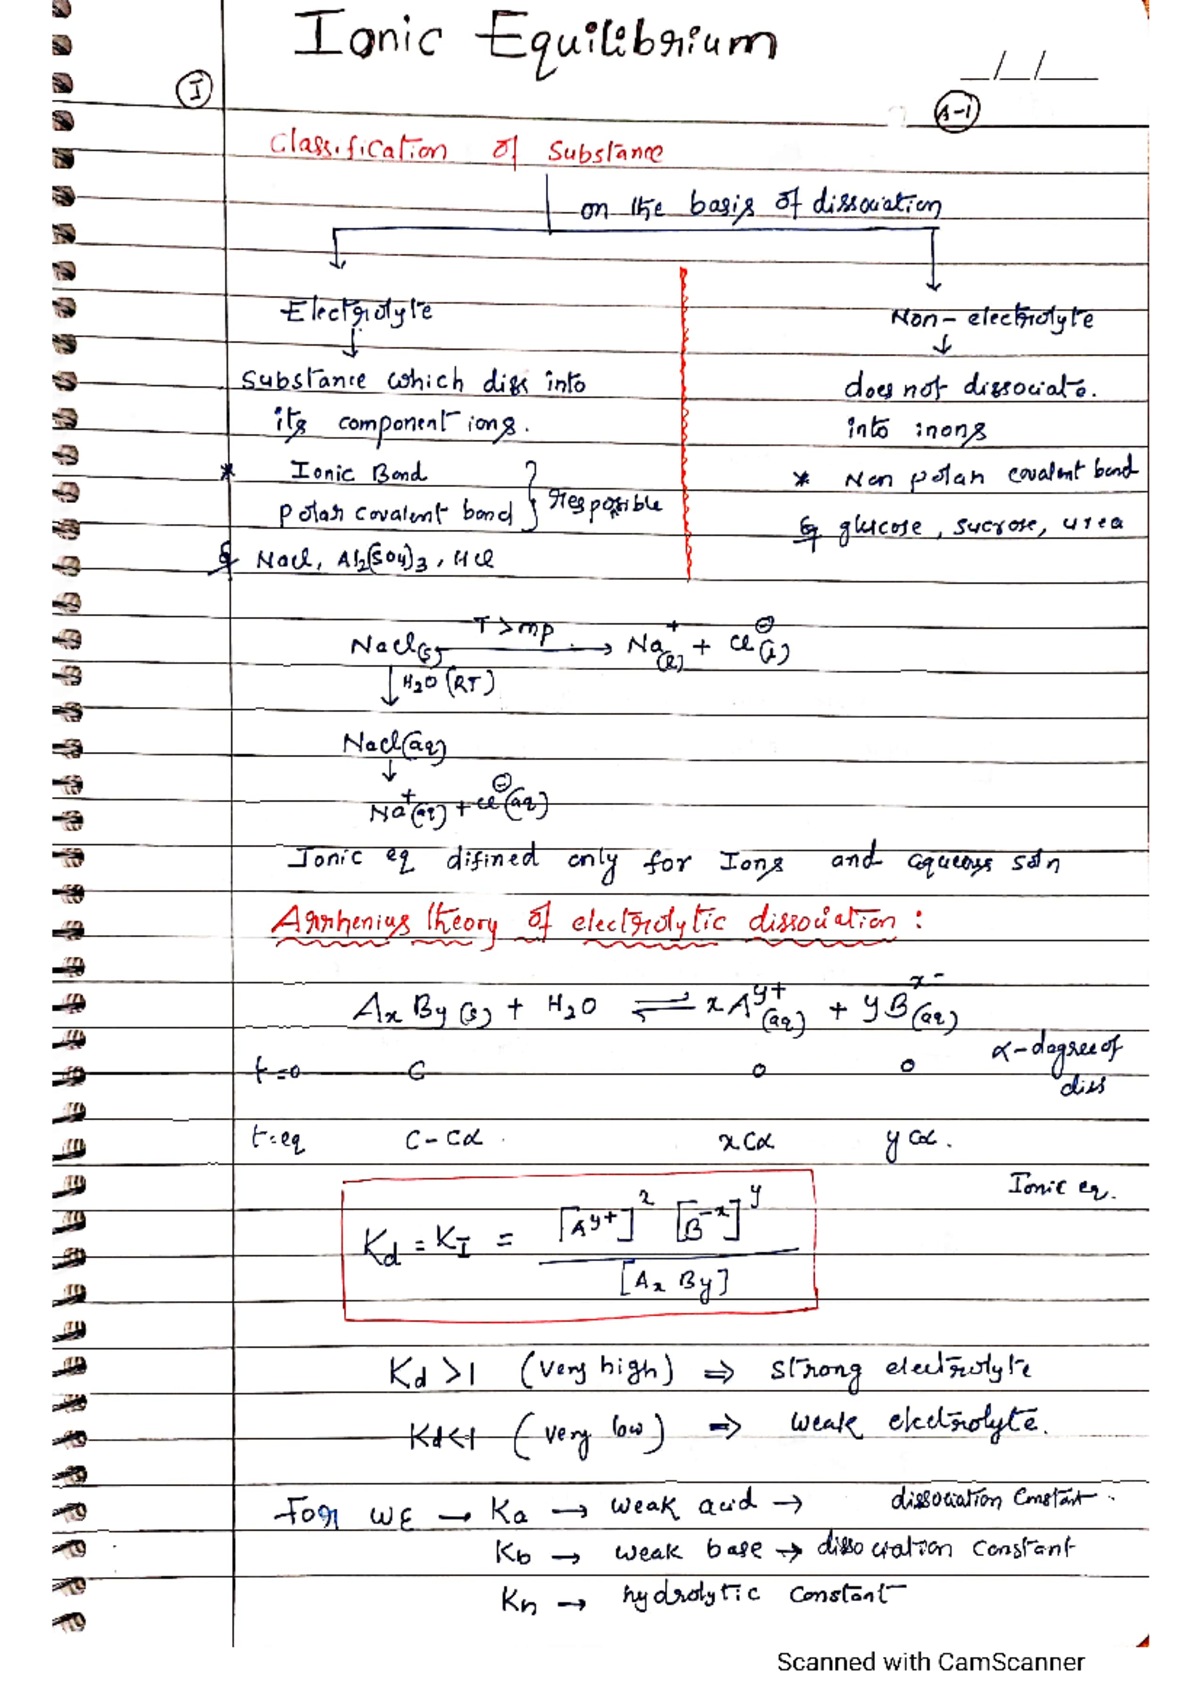 Ionic Equilibrium
_/_/__
I
A-1
Classification of Substance
on the basis of dissociation
Electrolyte
Non-electrolyte
Substance which diss into
does not dissociate.
its component ions.
into inons
* Ionic Bond
* Non polar covalent bond
polar covalent bond } responsible
Eg glucose, sucrose, urea
Eg NaCl, Al2(SO4)3, HCl
NaCl(s) T>mp → Na+(l) + Cl⊖(l)
↓ H2O (RT)
NaCl(aq)
↓
Na+(aq) + Cl⊖(aq)
Ionic eq difined only for Ions and aqueous soln
Arrhenius theory of electrolytic dissociation :
AxBy(s) + H2O ⇌ xA^y+(aq) + yB^x-(aq)
α-degree of diss
t=0 C 0 0
t=eq C-Cα xCα yCα.
Ionic eq.
Kd = KI = [A^y+]^x [B^-x]^y / [AxBy]
Kd >1 (very high) ⇒ strong electrolyte
Kd<1 (very low) ⇒ weak electrolyte.
For WE → Ka → weak acid → dissociation Constant.
Kb → weak base → dissociation constant
Kh → hydrolytic constant
Scanned with CamScanner